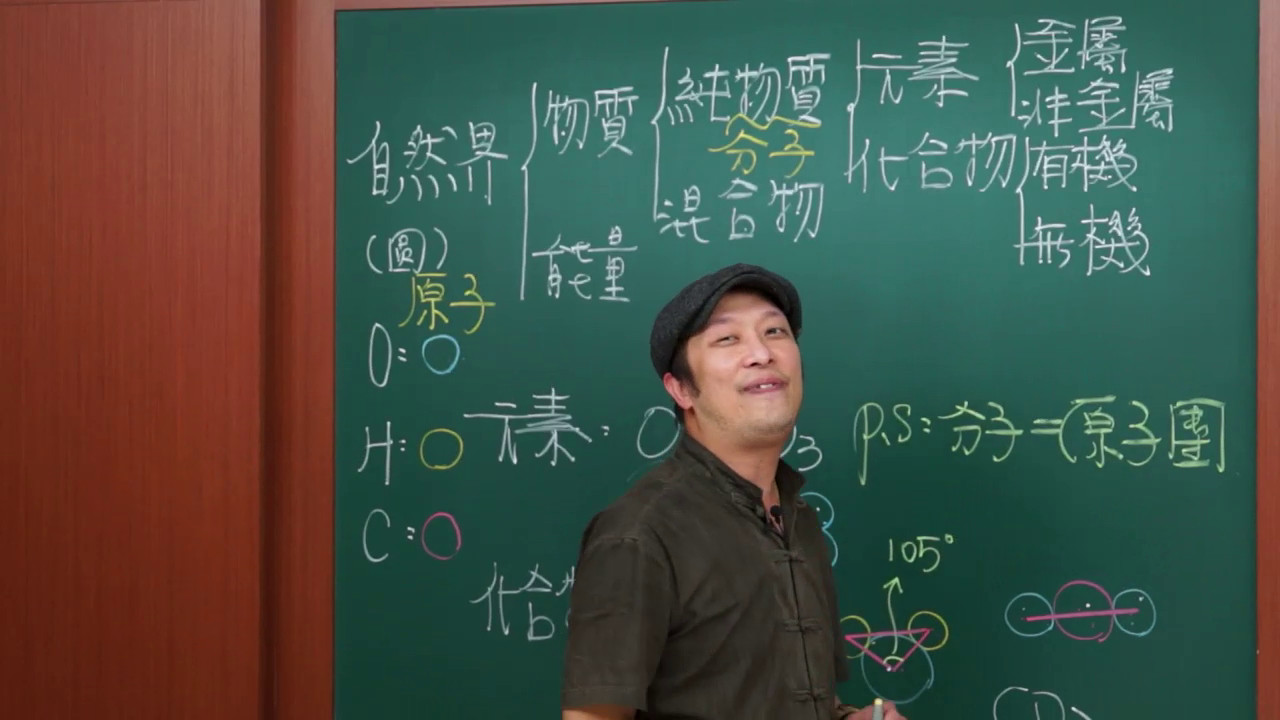 自然界
(圓)
原子
O:
H:
C:
物質
能量
純物質
分子
混合物
元素
化合物
金屬
非金屬
有機
無機
元素:
3
P.S:分子=(原子團
化合
105°